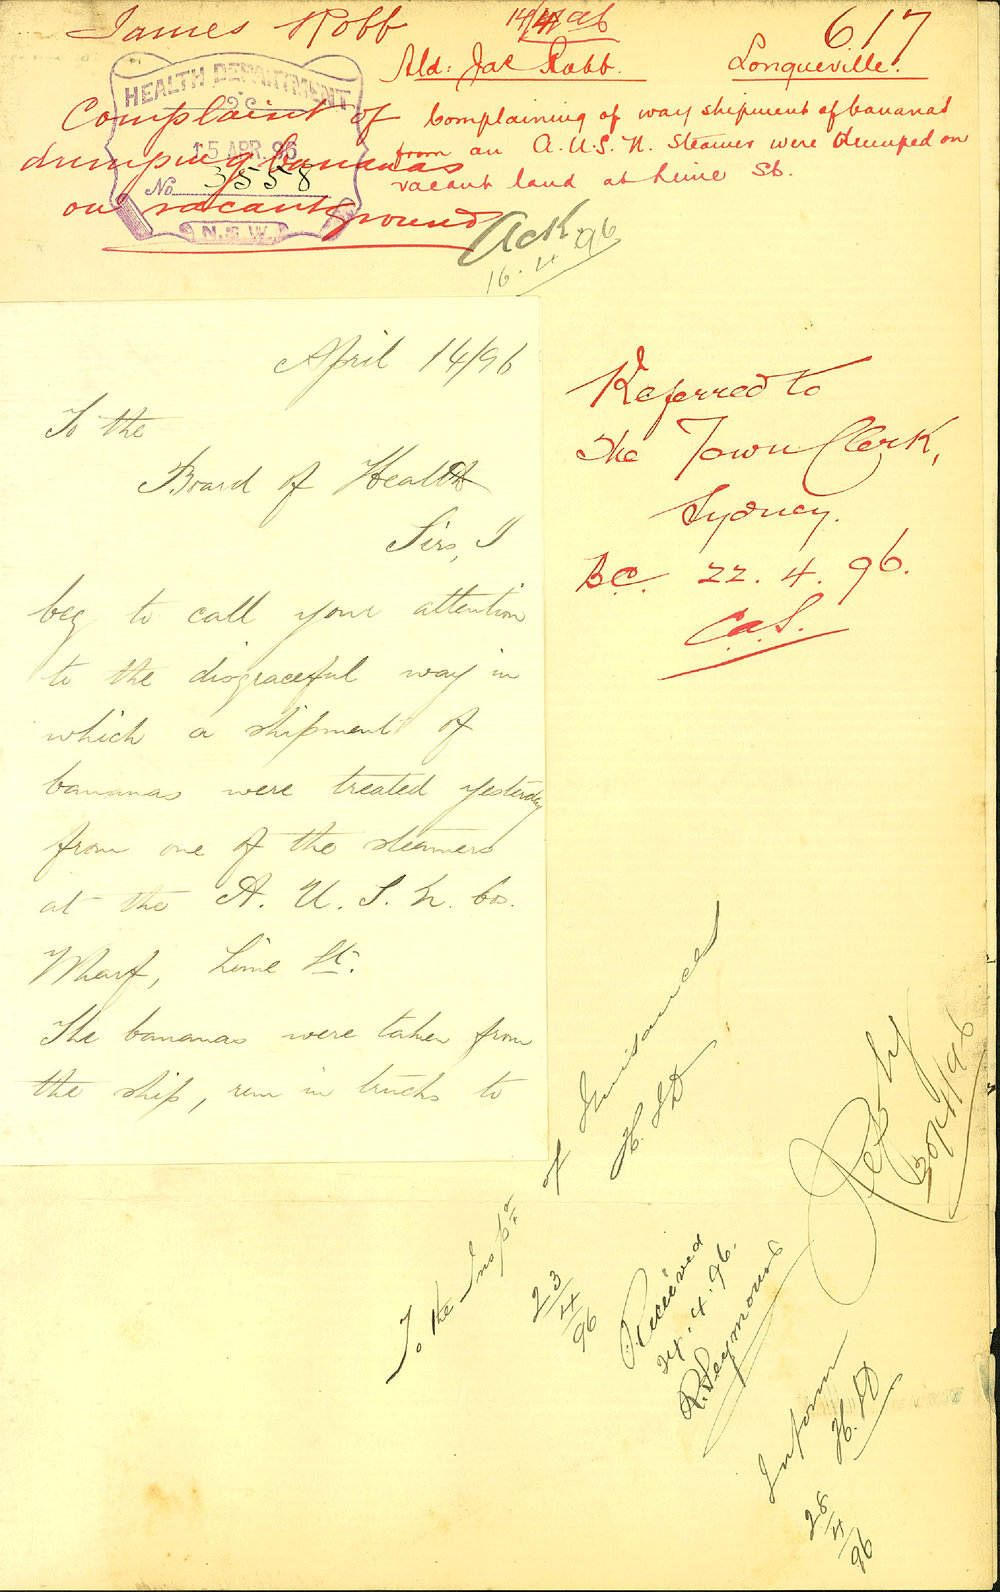 James Robb
14/4/96
617
Ald: Jas Robb.
Longueville.
HEALTH DEPARTMENT
15 APR. 96
No 3558
N.S.W.
Complaint of
dumping bananas
on vacant ground
Complaining of way shipment of bananas
from an A.U.S.N. Steamer were dumped on
vacant land at Lime St.
Ack
16.4.96
April 14/96
To the
Board of Health
Sirs, I
beg to call your attention
to the disgraceful way in
which a shipment of
bananas were treated yesterday
from one of the steamers
at the A. U. S. N. Cos.
Wharf, Lime St.
The bananas were taken from
the ship, run in trucks to
Referred to
the Town Clerk,
Sydney.
B.C. 22.4.96.
To the Inspr. of Nuisances
23/4/96
Received
24.4.96.
R. Seymour
Reply
30/4/96
Inform
28/4/96